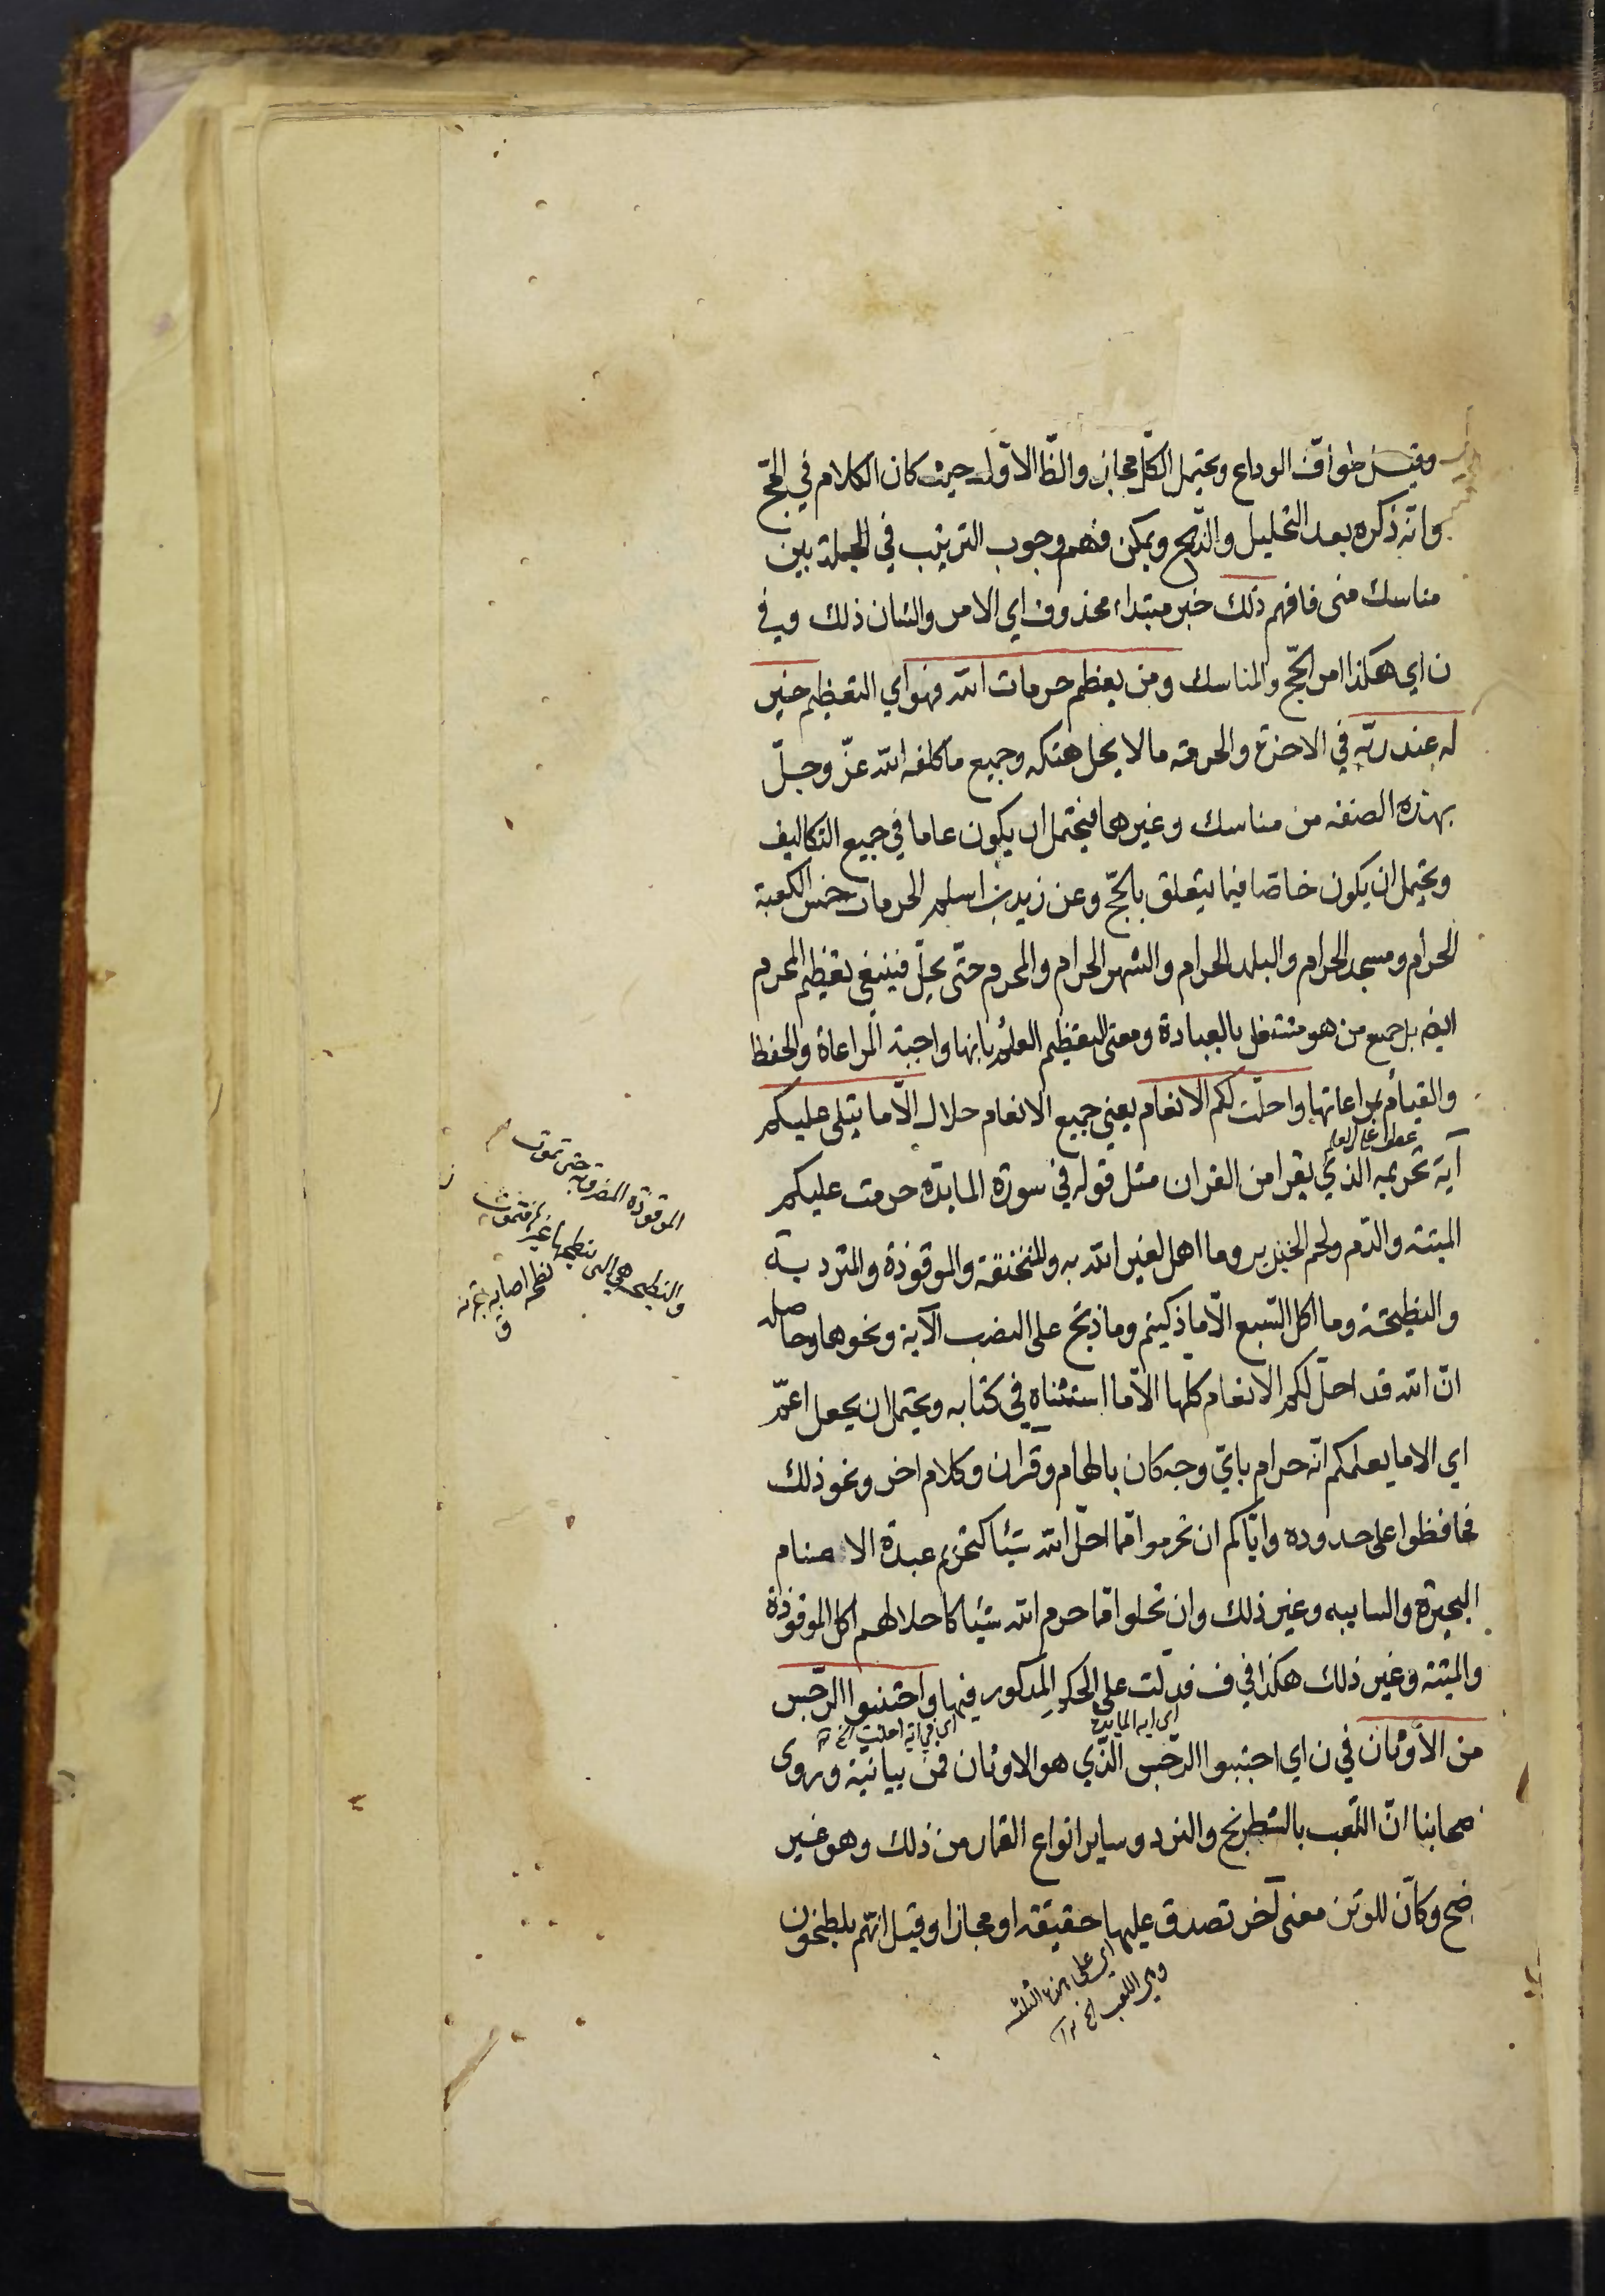 وقيل طواف الوداع ويحتمل الكلّ مجاز والظّ الاوّل حيث كان الكلام في الحجّ
وانّه ذكره بعد التحليل والذّبح ويمكن فهم وجوب الترتيب في الجملة بين
مناسك منى فافهم ذلك خبر مبتداء محذوف اي الامر والشان ذلك وفي
ن اي هكذا امر الحجّ والمناسك ومن يعظم حرمات الله فهو اي التعظيم خير
له عند ربّه في الاخرة والحرمة ما لا يحل هتكه وجميع ما كلفه الله عزّ وجلّ
بهذه الصفة من مناسك وغيرها فيحتمل ان يكون عاما في جميع التكاليف
ويحتمل ان يكون خاصّا فيما يتعلق بالحجّ وعن زيد بن اسلم الحرمات خمس الكعبة
الحرام ومسجد الحرام والبلد الحرام والشهر الحرام والمحرم حتّى يحلّ فينبغي تعظيم المحرم
ايضا بل جميع من هو مشتغل بالعبادة ومعنى التعظيم العلم بانها واجبة المراعاة والحفظ
والقيام بمراعاتها واحلّت لكم الانعام يعني جميع الانعام حلال الّا ما يتلى عليكم
عطف على العلم
آية تحريمه الذي يقرا من القران مثل قوله في سورة المايدة حرمت عليكم
الميتة والدّم ولحم الخنزير وما اهل لغير الله به والمنخنقة والموقوذة والمتردية
والنطيحة وما اكل السّبع الّا ما ذكيتم وما ذبح على النصب الآية ونحوها وحاصله
انّ الله قد احلّ لكم الانعام كلّها الّا ما استثناه في كتابه ويحتمل ان يجعل اعمّ
اي الا ما يعلمكم انّه حرام بايّ وجه كان بالهام وقران وكلام اخر ونحو ذلك
فحافظوا على حدوده وايّاكم ان تحرموا ممّا احلّ الله شيئا كتحريم عبدة الاصنام
البحيرة والسايبه وغير ذلك وان تحلوا ممّا حرم الله شيئا كاحلالهم اكل الموقوذة
والميتة وغير ذلك هكذا في ف فدلّت على الحكم المذكور فيها واجتنبوا الرّجس
اي اية المايدة
اي في اية احلت الخ
من الأوثان في ن اي اجتنبوا الرّجس الّذي هو الاوثان فمن بيانيّة وروى
صحابنا انّ اللّعب بالشطرنج والنرد وساير انواع القمار من ذلك وهو غير
ضح وكانّ للوثن معنى آخر تصدق عليها حقيقة او مجازا وقيل انّهم يلطخون
اي على الثلثة
وهي اللعب الخ
الموقوذة المضروبة حتى تموت
والنطيحة هي التى ينطحها غيرها فتموت
نطحه اصابه بقرنه
ق